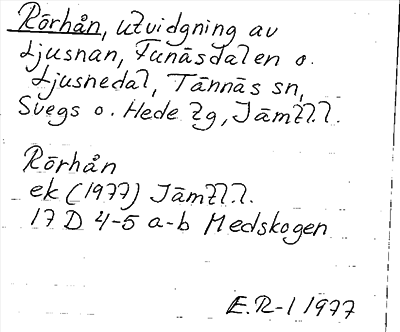 Rörhån, utvidgning av
Ljusnan, Funäsdalen o.
Ljusnedal, Tännäs sn,
Svegs o. Hede tg, Jämtl.l.
Rörhån
ek (1977) Jämtl.l.
17 D 4-5 a-b Medskogen
E.R-l 1977